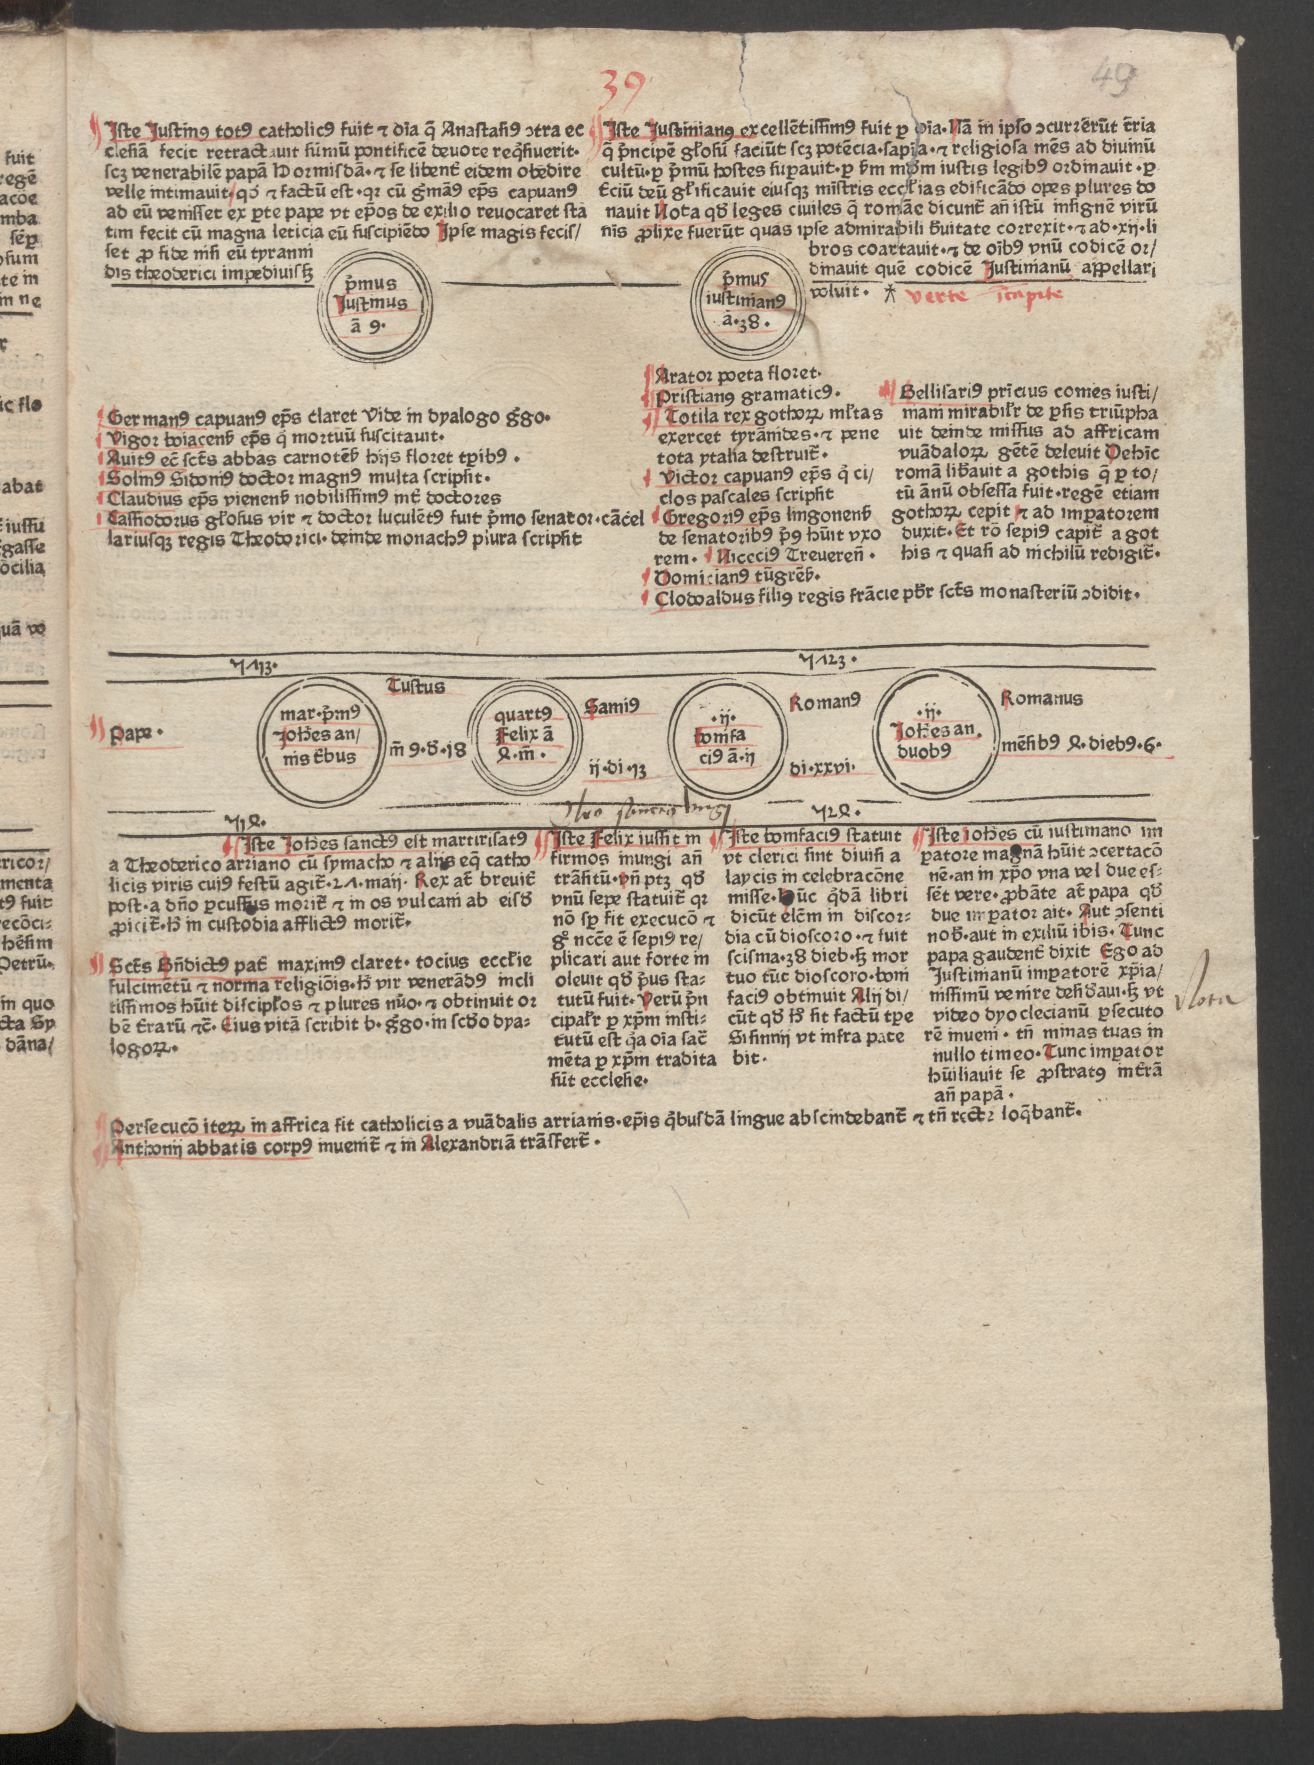 39
49
Iste Iustinꝰ totꝰ catholicꝰ fuit ⁊ oīa q̄ Anastasiꝰ ɔtra ec
clesiā fecit retractauit sūmū pontificē deuote reqͥsiuerit·
scꝫ venerabilē papā Hormisdā·⁊ se libent̄ eidem obedire
velle intimauit·qd̛ ⁊ factū est·qꝛ cū gͥmāꝰ ep̄s capuanꝰ
ad eū venisset ex ꝑte pape vt ep̄os de exilio reuocaret sta
tim fecit cū magna leticia eū suscipiēdo Ipse magis fecis/
set ꝓ fide nisi eū tyranni
dis theoderici impediuisꝫ
Iste Iustinianꝰ excellētissimꝰ fuit ꝑ oīa·Nā in ipso ɔcurrērūt t̄ria
q̄ pͥncipē gl̄osū faciūt scꝫ potēcia·sapīa·⁊ religiosa mēs ad diuinū
cultū·ꝑ pͥmū hostes suꝑauit·ꝑ ẜm mūdm iustis legibꝰ ordinauit·ꝑ
t̄ciū deū gl̄ificauit eiusqꝫ mīstris eccl̄ias edificādo opes plures do
nauit Nota qd̛ leges ciuiles q̄ romāe dicunt̄ añ istū insignē virū
nīs ꝓlixe fuerūt quas ipse admirabili b̄uitate correxit·⁊ ad·xij·li
bros coartauit·⁊ de oībꝰ vnū codicē or/
dinauit quē codicē Iustinianū appellari
voluit·
verte
pͥmus
Iustinus
ā 9·
pͥmus
iustinianꝰ
ā·38·
Germanꝰ capuanꝰ ep̄s claret Vide in dyalogo gͥgo·
Vigor boiacenẜ ep̄s qͥ mortuū suscitauit·
Auitꝰ ec̄ sct̄s abbas carnotēẜ hijs floret tꝑibꝰ·
Solinꝰ Sidoniꝰ doctor magnꝰ multa scripsit·
Claudius ep̄s vienenẜ nobilissimꝰ int̄ doctores
Cassiodorus gl̄osus vir ⁊ doctor luculētꝰ fuit pͥmo senator·cācel
lariusqꝫ regis Theodorici·deinde monachꝰ plura scripsit
Arator poeta floret·
Pristianꝰ gramaticꝰ·
Totila rex gothoꝝ ml̄tas
exercet tyrānides·⁊ pene
tota ytalia destruit̄·
Victor capuanꝰ ep̄s qͥ ci/
clos pascales scripsit
Gregoriꝰ ep̄s lingonenẜ
de senatoribꝰ pͥꝰ hūit vxo
rem· Niceciꝰ Treuereñ·
Domicianꝰ tūgrēẜ·
Clodoaldus filiꝰ regis frācie pb̄r sct̄s monasteriū ɔdidit·
Bellisariꝰ pͥncius comes iusti/
niani mirabil̄r de ꝑsis triūpha
uit deinde missus ad affricam
vuādaloꝝ gētē deleuit Dehīc
romā lib̄auit a gothis q̄ ꝑ to/
tū ānū obsessa fuit·regē etiam
gothoꝝ cepit ⁊ ad imꝑatorem
duxit·Et rō sepiꝰ capit̄ a got
his ⁊ quasi ad nichilū redigit̄·
Pape·
mar·pͥmꝰ
Ioħes an/
nis t̄bus
Tuscus
m̄ 9·d̛·18
quartꝰ
Felix ā
4·m̄·
Samiꝰ
ij·di·13
·ij·
bonifa
ciꝰ ā·ij
Romanꝰ
di·xxvi·
·ij·
Ioħes an.
duobꝰ
Romanus
mēsibꝰ 4·diebꝰ·6·
Iste Ioħes sanctꝰ est martirisatꝰ
a Theoderico arriano cū symacho ⁊ alijs eqͥ catho
licis viris cuiꝰ festū agit̄·21·maij· Rex at̄ breuit̄
post·a dn̄o ꝑcussus morit̄ ⁊ in os vulcani ab eisd̛
ꝓicit̄·Iꝫ in custodia afflictꝰ morit̄·
Sct̄s Bn̄dictꝰ pat̄ maximꝰ claret· tocius eccl̄ie
fulcimētū ⁊ norma religiōis·Iꝫ vir venerādꝰ incli
tissimos hūit discipl̄os ⁊ plures nūo·⁊ obtinuit or
bē t̄rarū ⁊c̄· Eius vitā scribit b·gͥgo·in scd̛o dya-
logoꝝ·
Iste Felix iussit in
firmos inungi añ
trāsitū·vñ ptꝫ qd̛
vnū sepe statuit̄ qꝛ
nō sꝑ fit execucō ⁊
gͦ ncc̄e ē sepiꝰ re/
plicari aut forte in
oleuit qd̛ pͥus sta-
tutū fuit· Verū pͥn
cipal̄r ꝑ xp̄m insti-
tutū est qͥa oīa sac̄
mēta ꝑ xp̄m tradita
sūt ecclesie·
Iste bonifaciꝰ statuit
vt clerici sint diuisi a
laycis in celebracōne
misse·Hūc qͥdā libri
dicūt elc̄m in discor-
dia cū dioscoro·⁊ fuit
scisma·38 dieb·sꝫ mor
tuo tūc dioscoro·boni
faciꝰ obtinuit Alij di/
cūt qd̛ Iꝫ sit factū tꝑe
Sifinnij vt infra pate
bit·
Iste Ioħes cū iustiniano im
ꝑatore magnā hūit ɔcertacō
nē·an in xp̄o vna vel due es-
sēt vere·ꝓbāte at̄ papa qd̛
due imꝑator ait· Aut ɔsenti
nob̄·aut in exiliū ibis· Tunc
papa gaudent̄ dixit Ego ad
Iustinianū imꝑatorē xp̄ia/
nissimū venire desid̛aui·sꝫ vt
video dyoclecianū ꝑsecuto
rē inueni· tñ minas tuas in
nullo timeo·Tunc imꝑator
hūiliauit se ꝓstratꝰ int̄rā
añ papā·
Nota
Persecucō iteꝝ in affrica fit catholicis a vuādalis arrianis·ep̄is qͥbusdā lingue abscindebant̄ ⁊ tñ recte loqͥbant̄·
Anthonij abbatis corpꝰ inuenit̄ ⁊ in Alexandriā trāsfert̄·